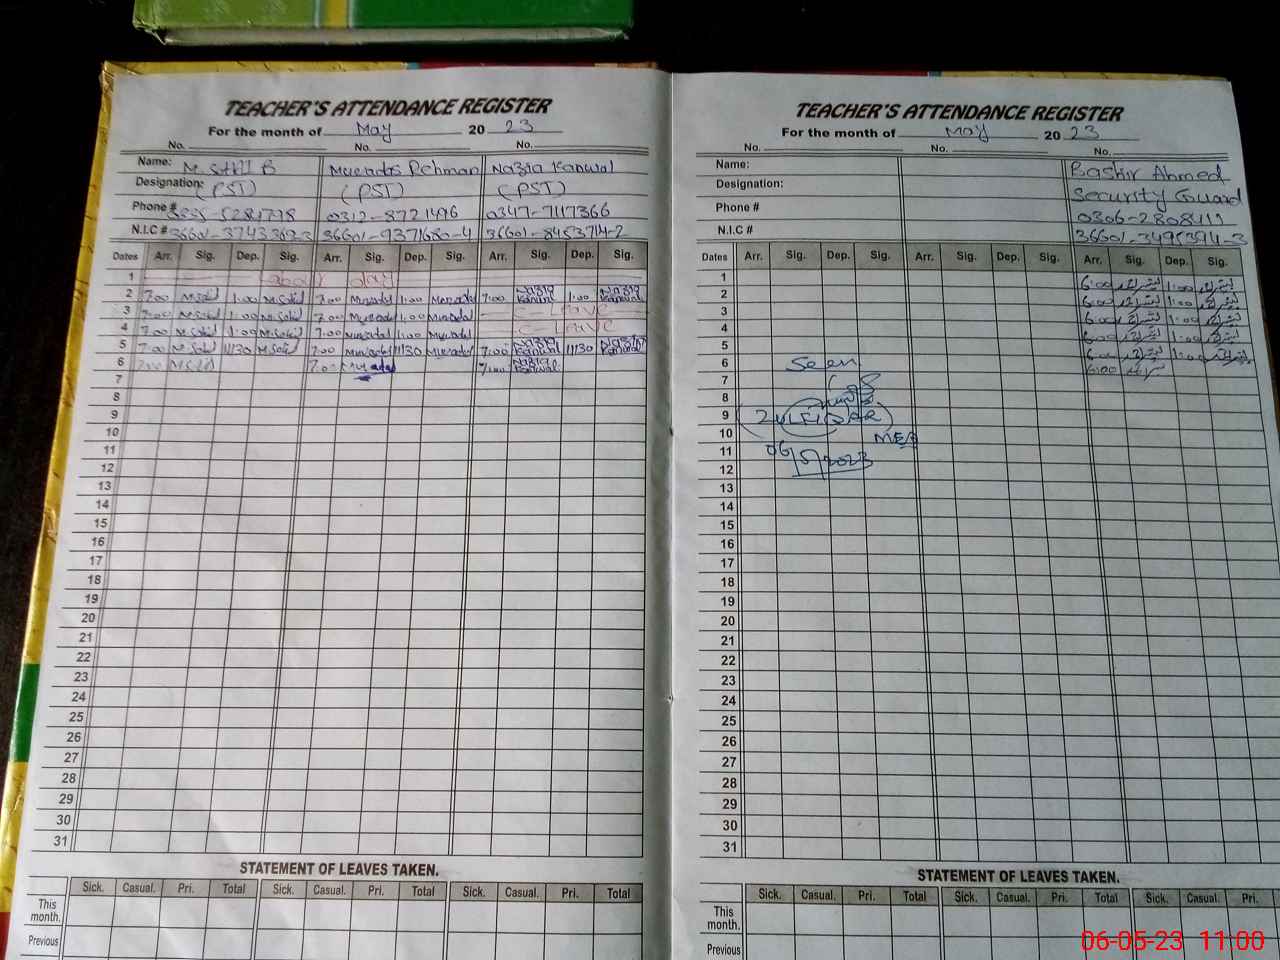 TEACHER'S ATTENDANCE REGISTER
For the month of May 20 23
No. No. No.
Name: Muradas Rehman Nazia Kanwal
Designation: (PST) (PST) (PST)
Phone # 0312-8721496 0347-7117366
N.I.C # 36601-9371680-4 36601-8453714-2
Dates Arr. Sig. Dep. Sig. Arr. Sig. Dep. Sig. Arr. Sig. Dep. Sig.
1 Labour day
2 7:00 M.Sajid 1:00 M.Sajid 7:00 1:00 7:00 Nazia Kanwal 1:00 Nazia Kanwal
3 7:00 M.Sajid 1:00 M.Sajid 7:00 1:00 C-Leave
4 7:00 M.Sajid 1:00 M.Sajid 7:00 1:00 C-Leave
5 7:00 M.Sajid 11:30 M.Sajid 7:00 11:30 7:00 Nazia Kanwal 11:30 Nazia Kanwal
6 7:00 M.Sajid 7:00 7:00 Nazia Kanwal
7
8
9
10
11
12
13
14
15
16
17
18
19
20
21
22
23
24
25
26
27
28
29
30
31
STATEMENT OF LEAVES TAKEN.
Sick. Casual. Pri. Total Sick. Casual. Pri. Total Sick. Casual. Pri. Total
This month.
Previous
TEACHER'S ATTENDANCE REGISTER
For the month of May 20 23
No. No. No.
Name: Bashir Ahmed
Designation: Security Guard
Phone # 0306-2808411
N.I.C # 36601-3495394-3
Dates Arr. Sig. Dep. Sig. Arr. Sig. Dep. Sig. Arr. Sig. Dep. Sig.
1 6:00 1:00
2 6:00 1:00
3 6:00 1:00
4 6:00 1:00
5 6:00 1:00
6 Seen 6:00
7
8
9 (ZULFIQAR)
10 MEA
11 06/5/2023
12
13
14
15
16
17
18
19
20
21
22
23
24
25
26
27
28
29
30
31
STATEMENT OF LEAVES TAKEN.
Sick. Casual. Pri. Total Sick. Casual. Pri. Total Sick. Casual. Pri.
This month.
Previous
06-05-23 11:00